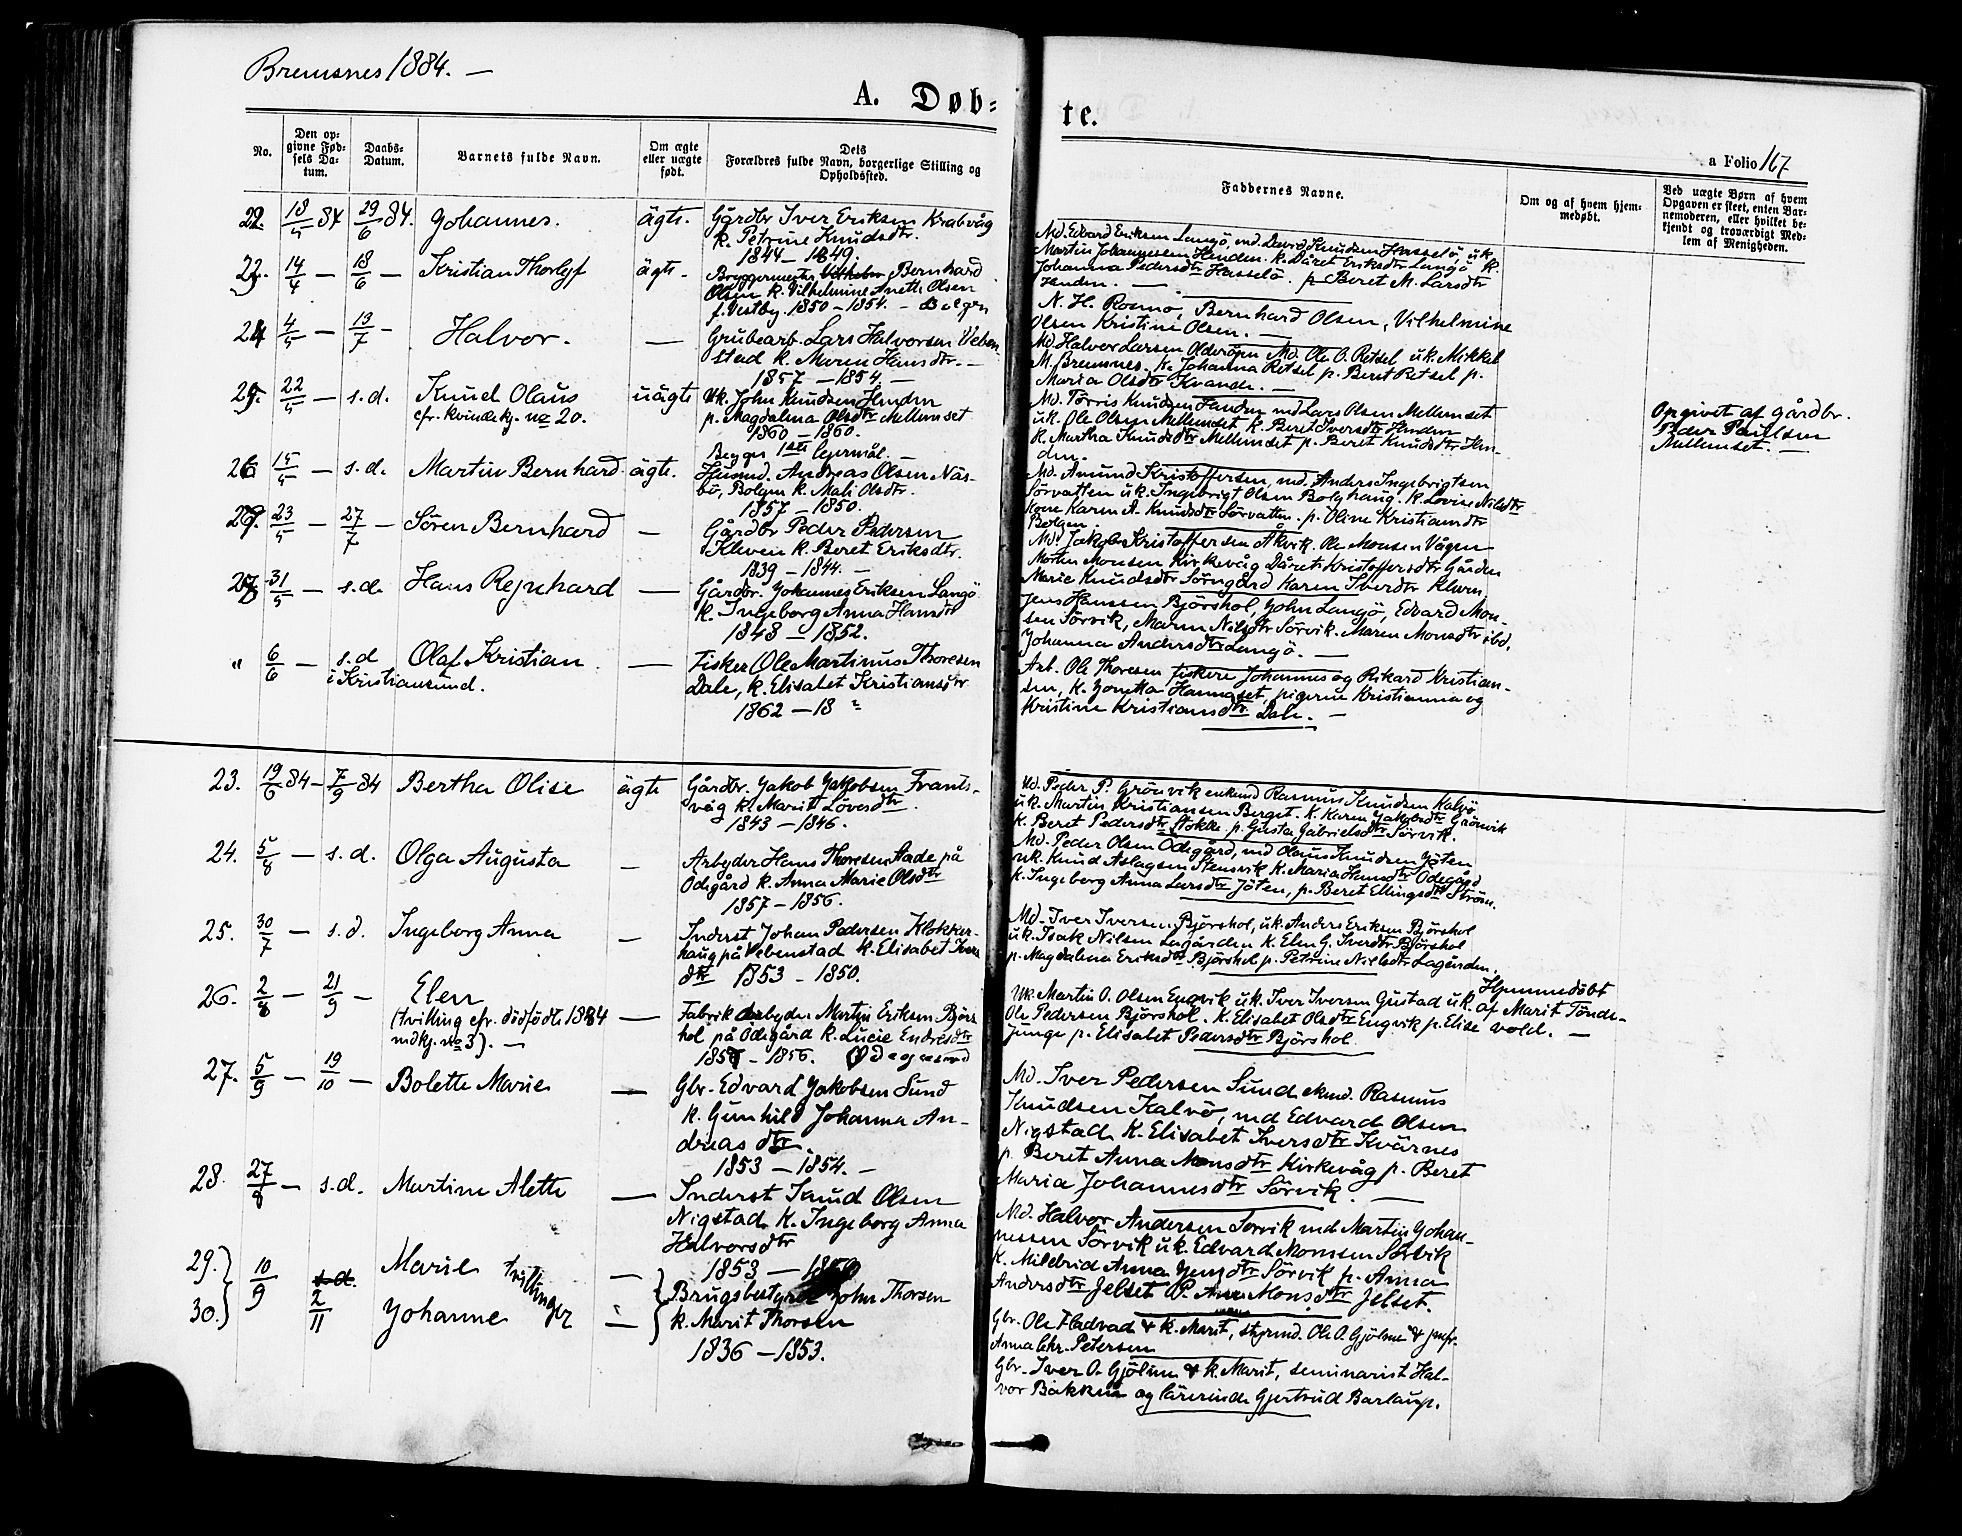 Bremsnes 1884. —
A. Døb=
te.
a Folio 167
No.
Den op=
givne Fød=
sels Da=
tum.
Daabs=
Datum.
Barnets fulde Navn.
Om ægte
eller uægte
født.
Dets
Forældres fulde Navn, borgerlige Stilling og
Opholdssted.
Faddernes Navne.
Om og af hvem hjem=
medøbt.
Ved uægte Børn af hvem
Opgaven er skeet, enten Bar=
nemoderen, eller hvilket be=
kjendt og troværdigt Med=
lem af Menigheden.
18/5 84 29/6 84. Johannes. ägte. Gårdbr Iver Eriksen Kråbvåg
k. Petrine Knudsdtr.
1844 – 1849.
Md. Edvard Eriksen Langö, md. David Knudsen Hasselö, uk.
Martin Johannessen Henden. k. Dåret Eriksdtr Langö k.
Johanna Pedersdtr Hasselö. p. Beret M. Larsdtr
Henden. —
14/4 – 18/6 – Kristian ägte. Bryggermester Bernhard
Olsen k. Vilhelmine Anette Olsen
f. Vestby. 1850 – 1854. – Bolgen
N. H. Rosmo, Bernhard Olsen, Vilhelmine
Olsen Kristine Olsen. —
4/5 – 13/7 – Halvor. — Grubearb. Lars Halvorsen Veben
stad k. Maren Hansdtr. –
1857 – 1854. –
Md. Halvor Larsen Olderöen Md. Ole O. Retsel uk. Mikkel
M. Bremsnes. k. Johanna Retsel p. Beret Retsel p.
Maria Olsdtr Kvande. —
22/5 – s.d. Knud Olaus uägte Uk. John Knudsen Henden
cfr. kvindekj. no 20. p. Magdalena Olsdtr Mellemset
1860 – 1860.
Begges 1ste lejermål. –
Md. Torris Knudsen Henden md Lars Olsen Mellemset
uk. Ole Olsen Mellemset k. Beret Iversdtr Henden
k. Martha Knudsdtr Mellemset p. Beret Knudsdtr Hen-
den.
Opgivet af gårdbr.
Peder Paulsen
Mellemset. —
15/5 – s.d. Martin Bernhard. ägte. Husmd. Andreas Olsen Näs-
bö, Bolgen k. Mali Olsdtr.
1857 – 1850.
Md. Amund Kristoffersen, md. Anders Ingebrigtsen
Sörvatten uk. Ingebrigt Olsen Bolghaug. k. Lovise Nilsdtr
kone Karen A. Knudsdtr Sörvatten. p. Oline Kristiansdtr
Bolgen.
23/5 – 27/7 – Sören Bernhard — Gårdbr Peder Pedersen
Kleven k. Beret Eriksdtr.
1839 – 1844. –
Md. Jakob Kristoffersen Åkvik. Ole Monsen Vågen
Morten Monsen Kirkevåg Dåret Kristoffersdtr Gården
Marie Knudsdtr Sörngård Karen Iversdtr Kleven
31/5 – s.d. Hans Rejnhard — Gårdbr. Johannes Eriksen Langö
k. Ingeborg Anna Hansdtr
1848 – 1852.
Jens Hanssen Björshol, John Langö, Edvard Mon-
sen Sörvik, Maren Nilsdtr Sörvik. Maren Monsdtr ibd.
Johanna Andersdtr Langö. —
" 6/6 – s.d Olaf Kristian. — Fisker Ole Martinus Thoresen
i Kristiansund. Dale, k. Elisabet Kristiansdtr
1862 – 18 "
Arb. Ole Thoresen fiskere Johannes og Rikard Kristian-
sen, k. Jonetta Hannaset, pigerne Kristianna og
Kristine Kristiansdtr Dale. —
23. 19/6 84 – 7/9 84 Bertha Olise ägte Gårdbr. Jakob Jakobsen Frants-
våg k. Marit Lovesdtr.
1843 – 1846.
Md. Peder P. Grönvik enkemd Rasmus Knudsen Kalvö
uk. Martin Kristiansen Berget. k. Karen Jakobsdtr Grönvik
k. Beret Pedersdtr Stokke. p. Gusta Gabrielsdtr Sörvik.
24. 5/8 – s.d. Olga Augusta — Arbejder Hans Thoresen Aade på
Ödegård k. Anna Marie Olsdtr
1857 – 1856.
Md. Peder Olsen Ödegård, md Olaus Knudsen Jöten
uk. Knud Aslagsen Stensvik k. Maria Hansdtr Ödegård
k. Ingeborg Anna Larsdtr Jöten, p. Beret Ellingsdtr Ström.
25. 30/7 – s.d. Ingeborg Anna — Inderst Johan Pedersen Klokker-
haug på Vebenstad k. Elisabet Ivers
dtr 1853 – 1850.
Md. Iver Iversen Björshol, uk. Anders Eriksen Björshol
uk. Isak Nilsen Lagården k. Elen G. Iversdtr Björshol
p. Magdalena Eriksdtr Björshol p. Petrine Nielsdtr Lagården.
26. 2/8 – 21/9 – Elen — Fabrikarbejder Martin Eriksen Björs
(tvilling cfr. dödfödte 1884
mdkj. no 3). — hol på Ödegård k. Lucie Endresdtr
1857 – 1856. Ödegaard
Uk. Martin O. Olsen Engvik uk. Iver Iversen Gustad uk.
Ole Pedersen Björshol. k. Elisabet Olsdtr Engvik p. Elise
Junge p. Elisabet Pedersdtr Björshol
Hjemmedöbt
af Marit Tönde-
vold. —
27. 5/9 – 19/10 – Bolette Marie — Gbr. Edvard Jakobsen Sund
k. Gunhild Johanna An-
dreas dtr.
1853 – 1854. –
Md. Iver Pedersen Sund ekmd. Rasmus
Knudsen Kalvö, md Edvard Olsen
Nigstad k. Elisabet Iversdtr Kvärnes
p. Beret Anna Monsdtr Kirkevåg p. Beret
Maria Johannesdtr Sörvik. —
28. 27/8 – s.d. Martine Alette — Inderst Knud Olsen
Nigstad k. Ingeborg Anna
Halvorsdtr
1853 –
Md. Halvor Andersen Sörvik md Martin Johan-
nessen Sörvik uk. Edvard Monsen Sörvik
k. Mildrid Anna Jensdtr Sörvik p. Anna
Andersdtr Jelset P. Ane Monsdtr Jelset.
29. 10/9 s.d. Marie tvillinger — Brugsbestyrer John Thorsen
30. 2/11 Johanne — k. Marit Thorsen
1836 – 1853.
Gbr. Ole Fladvad & k. Marit, styrmd. Ole O. Gjölme & jmfr.
Anna Chr. Petersen
Gbr. Iver O. Gjölme & k. Marit, seminarist Hal-
vor Bakken og lärerinde Gjertrud Barlaup.